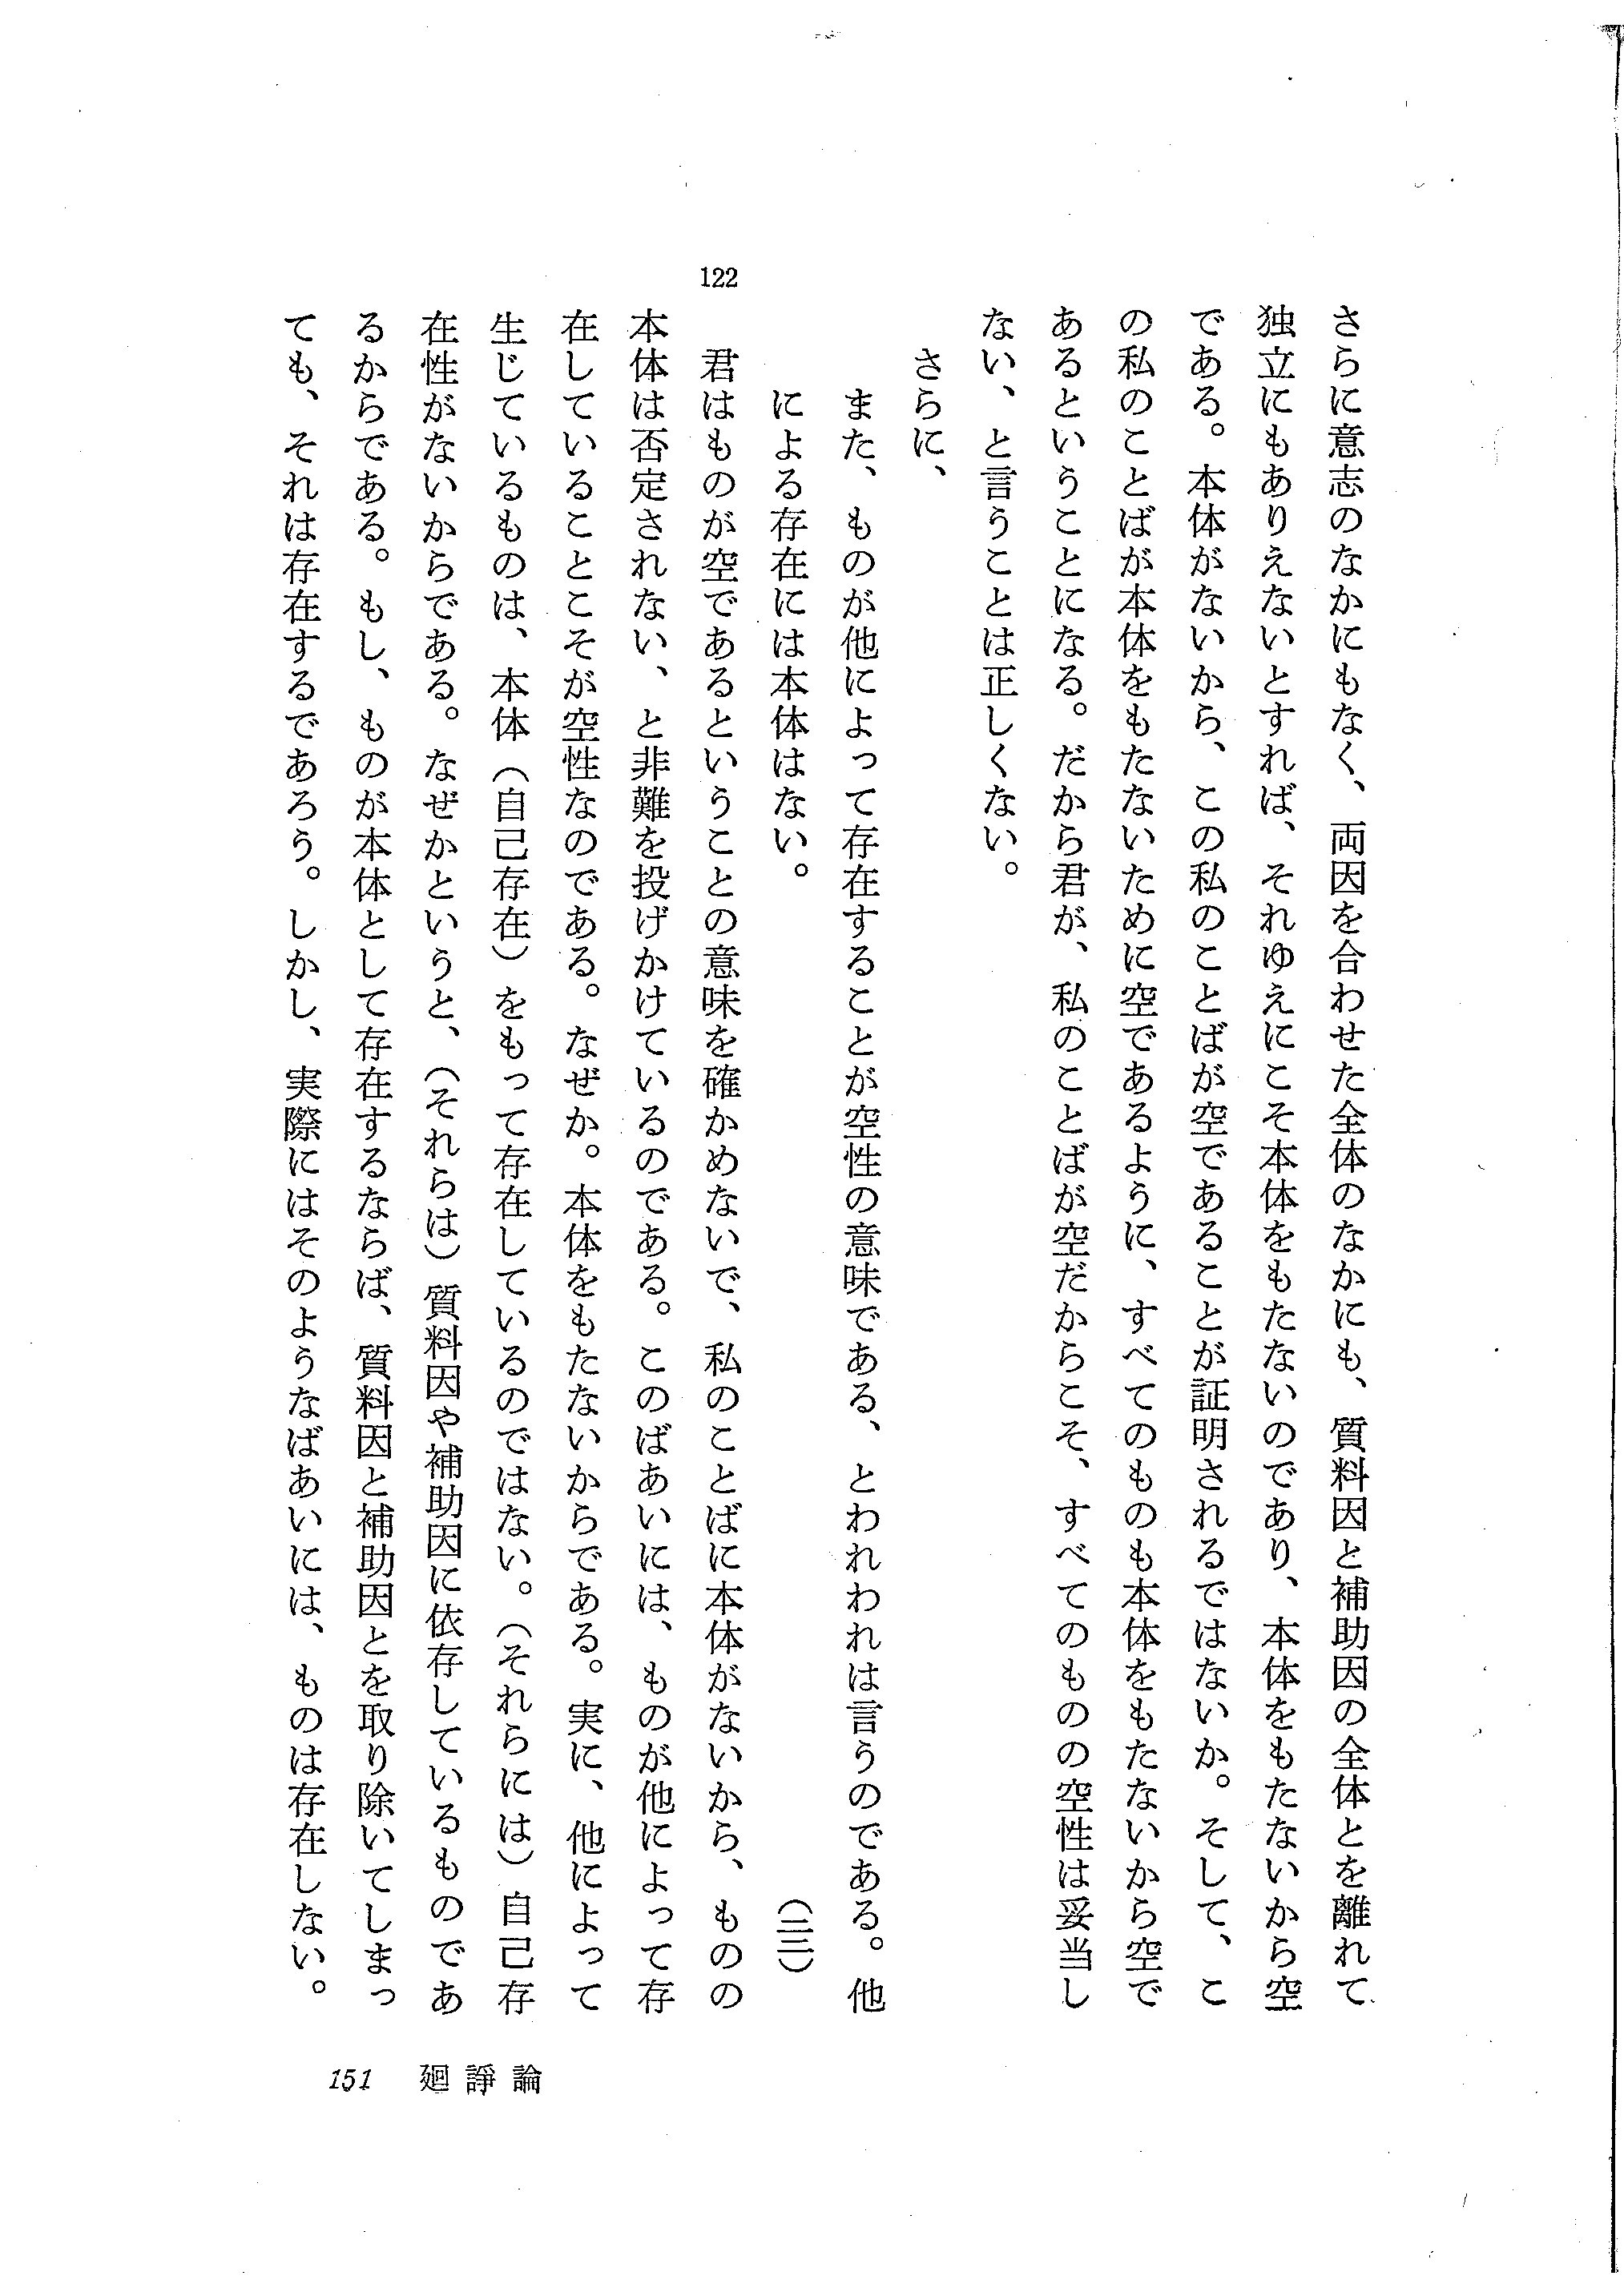 さらに意志のなかにもなく、両因を合わせた全体のなかにも、質料因と補助因の全体とを離れて
独立にもありえないとすれば、それゆえにこそ本体をもたないのであり、本体をもたないから空
である。本体がないから、この私のことばが空であることが証明されるではないか。そして、こ
の私のことばが本体をもたないために空であるように、すべてのものも本体をもたないから空で
あるということになる。だから君が、私のことばが空だからこそ、すべてのものの空性は妥当し
ない、と言うことは正しくない。
さらに、
また、ものが他によって存在することが空性の意味である、とわれわれは言うのである。他
による存在には本体はない。（二二）
122
君はものが空であるということの意味を確かめないで、私のことばに本体がないから、ものの
本体は否定されない、と非難を投げかけているのである。このばあいには、ものが他によって存
在していることこそが空性なのである。なぜか。本体をもたないからである。実に、他によって
生じているものは、本体（自己存在）をもって存在しているのではない。（それらには）自己存
在性がないからである。なぜかというと、（それらは）質料因や補助因に依存しているものであ
るからである。もし、ものが本体として存在するならば、質料因と補助因とを取り除いてしまっ
ても、それは存在するであろう。しかし、実際にはそのようなばあいには、ものは存在しない。
151 廻諍論